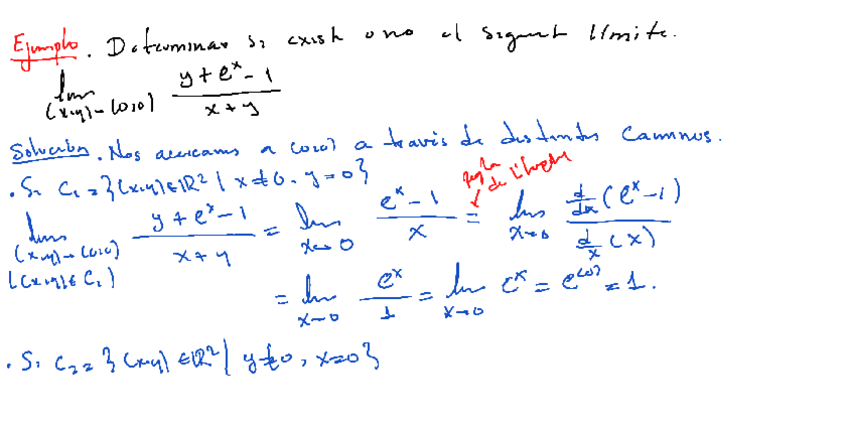 Ejemplo. Determinar si existe o no el siguient límite.
lim (x,y)→(0,0) (y + e^x - 1)/(x + y)
Solución. Nos acercamos a (0,0) a través de distintos caminos.
regla de L'Hopital
. Si C₁ = {(x,y) ∈ ℝ² | x ≠ 0, y = 0}
lim (x,y)→(0,0) [(x,y) ∈ C₁] (y + e^x - 1)/(x + y) = lim x→0 (e^x - 1)/x = lim x→0 (d/dx (e^x - 1))/(d/x (x))
= lim x→0 e^x/1 = lim x→0 e^x = e^(0) = 1.
. Si C₂ = {(x,y) ∈ ℝ² | y ≠ 0, x = 0}